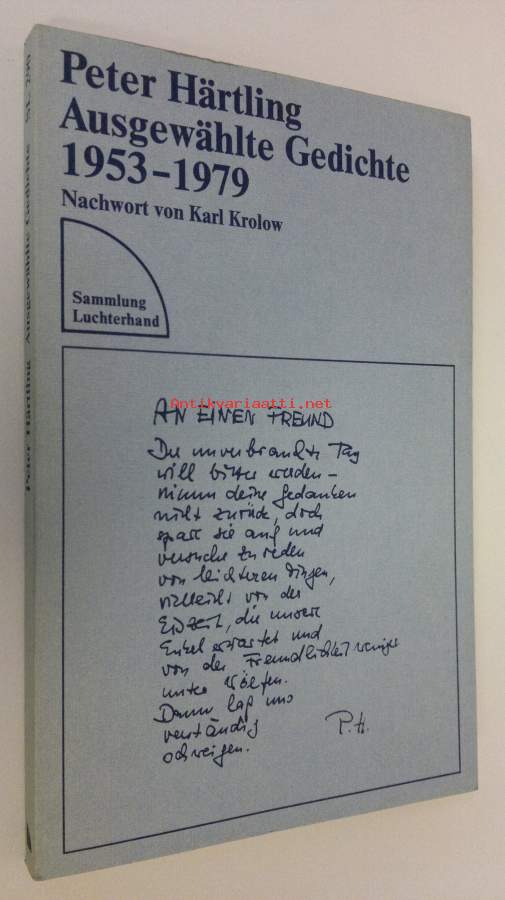 Peter Härtling
Ausgewählte Gedichte
1953–1979
Nachwort von Karl Krolow
Sammlung
Luchterhand
Antikvariaatti.net
AN EINEN FREUND
Der unverbrauchte Tag
will bitter werden –
nimm deine Gedanken
nicht zurück, doch
spare sie auf und
versuche zu reden
von leichteren Dingen,
vielleicht von der
Eiszeit, die unsere
Enkel erwartet und
von der Freundlichkeit weniger
unter Wölfen.
Dann laß uns
verständig
schweigen.
P.H.
Peter Härtling Ausgewählte Gedichte SL